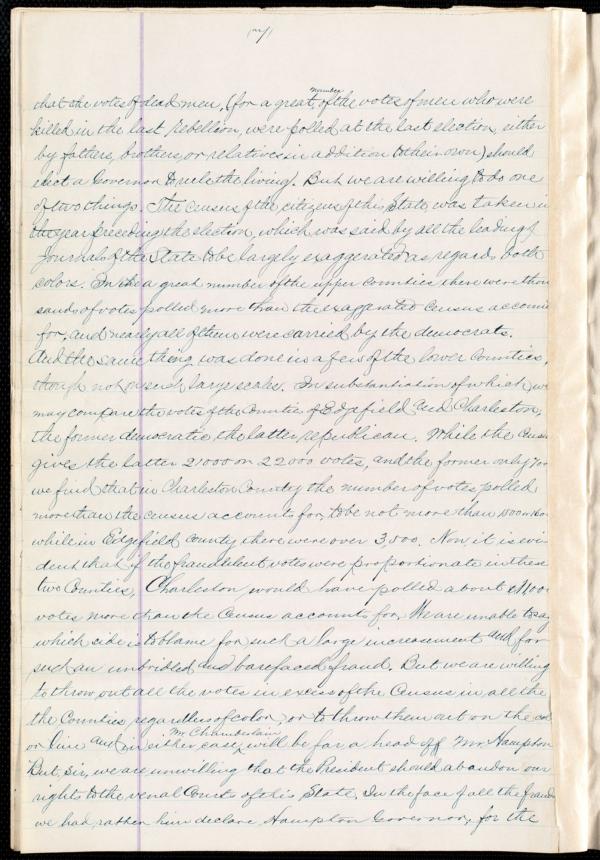 that the votes of dead men, (for a great number of the votes of men who were
killed in the last rebellion, were polled at the last election, either
by fathers, brothers, or relatives in addition to their own) should
elect a Governor to rule the living. But we are willing to do one
of two things. The Census of the citizens of this State was taken in
the year preceding the election, which was said by all the leading
Journals of the State to be largely exaggerated as regards both
colors. In a great number of the upper Counties there were thou
sands of votes polled more than the exaggerated Census account
for, and nearly all of them were carried by the democrats.
And the same thing was done in a few of the lower Counties,
though not on such large scale. In substantiation of which we
may compare the votes of the Counties of Edgefield and Charleston,
the former democratic, the latter republican. While the Census
gives the latter 21000 or 22000 votes, and the former only
we find that in Charleston County the number of votes polled
more than the census accounts for, to be not more than
while in Edgefield County there were over 3,000. Now it is evi
dent that if the fraudulent votes were proportionate in these
two Counties, Charleston would have polled about
votes more than the Census accounts for. We are unable to say
which side is to blame for such a large increasement and for
such an unbridled and barefaced fraud. But we are willing
to throw out all the votes in excess of the Census in all the
the Counties regardless of color, or to throw them out on the col
or line and in either case, Mr Chamberlain will be far a head off Mr. Hampton
But, Sir, we are unwilling that the President should abandon our
rights to the venal Courts of this State. In the face of all the frauds
we had rather him declare Hampton Governor, for the